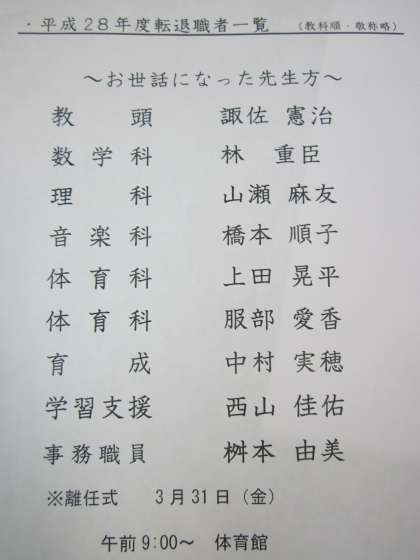 ・平成28年度転退職者一覧 (教科順・敬称略)
～お世話になった先生方～
教頭 諏佐 憲治
数学科 林 重臣
理科 山瀬 麻友
音楽科 橋本 順子
体育科 上田 晃平
体育科 服部 愛香
育成 中村 実穂
学習支援 西山 佳佑
事務職員 桝本 由美
※離任式 3月31日（金）
午前9:00～ 体育館